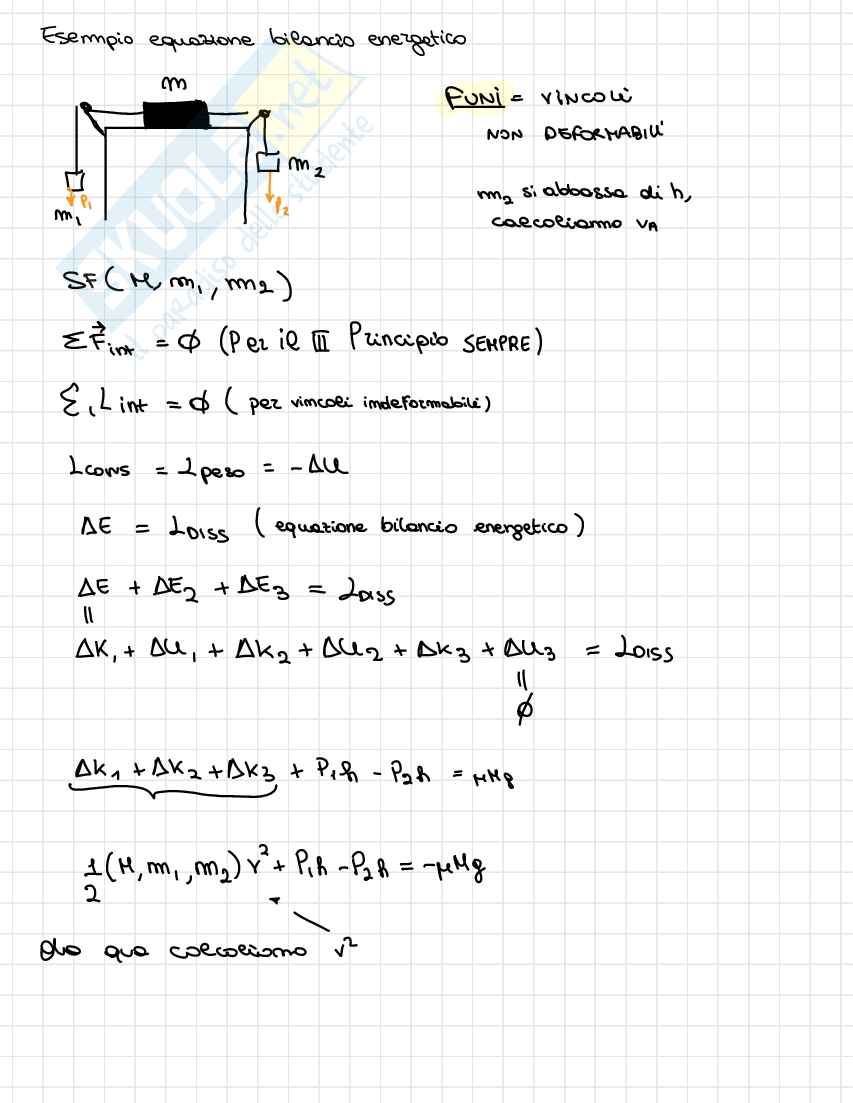 Esempio equazione bilancio energetico
m
FUNI = VINCOLI
NON DEFORMABILI
m2 si abbassa di h,
calcoliamo vA
m2
P1
P2
m1
SKUOLA.net
il paradiso dello studente
SF(M, m1, m2)
ΣF⃗int = ∅ (Per il III Principio SEMPRE)
Σ, Lint = ∅ (per vincoli indeformabili)
Lcons = Lpeso = -ΔU
ΔE = LDISS (equazione bilancio energetico)
ΔE + ΔE2 + ΔE3 = LDISS
||
ΔK1 + ΔU1 + ΔK2 + ΔU2 + ΔK3 + ΔU3 = LDISS
||
∅
ΔK1 + ΔK2 + ΔK3 + P1h - P2h = μMg
1/2 (M, m1, m2) v² + P1h - P2h = -μMg
da qua calcoliamo v²